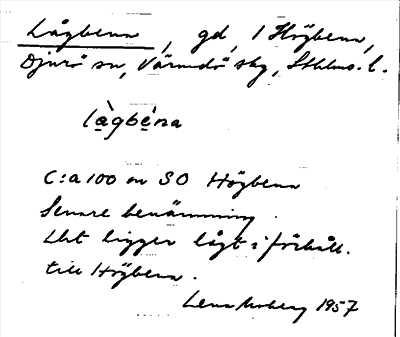 Lågbena, gd, 1 Högbena,
Djurö sn, Värmdö skg, Sthlms. l.
là̱gbé̱na
C:a 100 m SO Högbena
Senare benämning.
Det ligger lågt i förhåll.
till Högbena.
Lena Moberg 1957